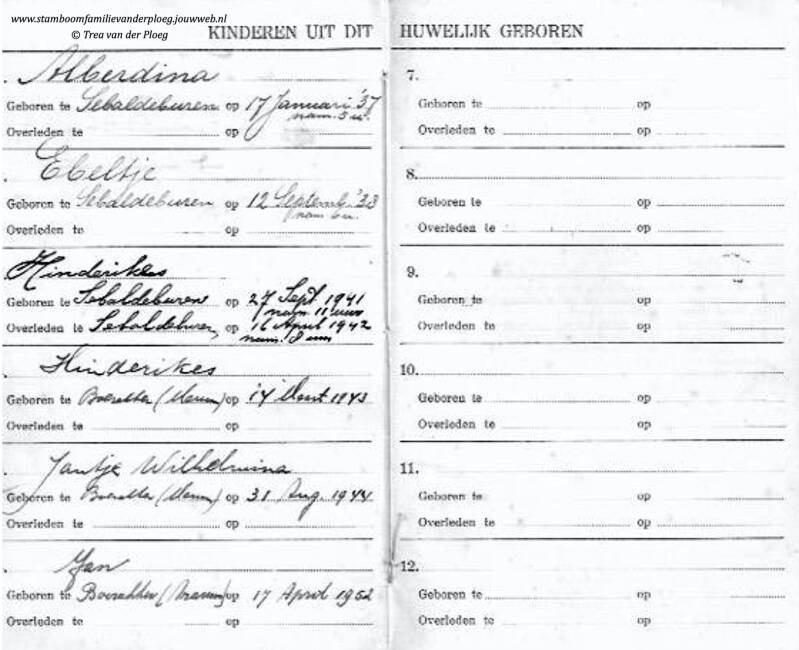 www.stamboomfamilievanderploeg.jouwweb.nl
© Trea van der Ploeg
KINDEREN UIT DIT HUWELIJK GEBOREN
Alberdina
Geboren te Sebaldeburen op 17 Januari '37
nam. 5 u.
Overleden te op
Ebeltje
Geboren te Sebaldeburen op 12 Septemb. '38
nam 6 u.
Overleden te op
Hinderikes
Geboren te Sebaldeburen op 27 Sept 1941
nam. 11 uur
Overleden te Sebaldeburen op 16 April 1942
nam. 8 uur
Hinderikes
Geboren te Boerakker (Marum) op 14 Maart 1943
Overleden te op
Jantje Wilhelmina
Geboren te Boerakker (Marum) op 31 Aug. 1944
Overleden te op
Jan
Geboren te Boerakker (Marum) op 17 April 1952
Overleden te op
7.
Geboren te op
Overleden te op
8.
Geboren te op
Overleden te op
9.
Geboren te op
Overleden te op
10.
Geboren te op
Overleden te op
11.
Geboren te op
Overleden te op
12.
Geboren te op
Overleden te op